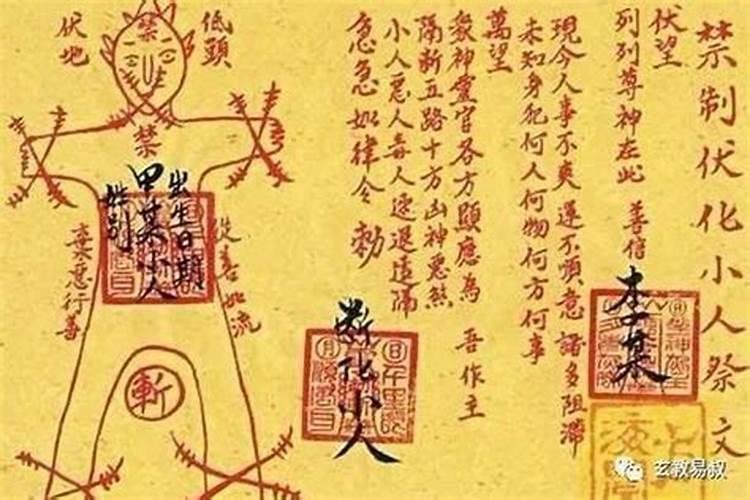 禁制伏化小人祭文
伏望
列列尊神在此 善信
李某
現今人事不爽 運不順意 諸多阻滯
未知身犯何人何物何方何事
萬望
衆神靈官各方顯應為 吾作主
隔斷五路十方凶神惡煞
小人惡人毒人速退遠隔
急急如律令 勅
斷化小人
低頭
禁
伏地
禁
出生日期
甲某小人
姓别
從善如流
棄惡行善
斬
玄教易叔